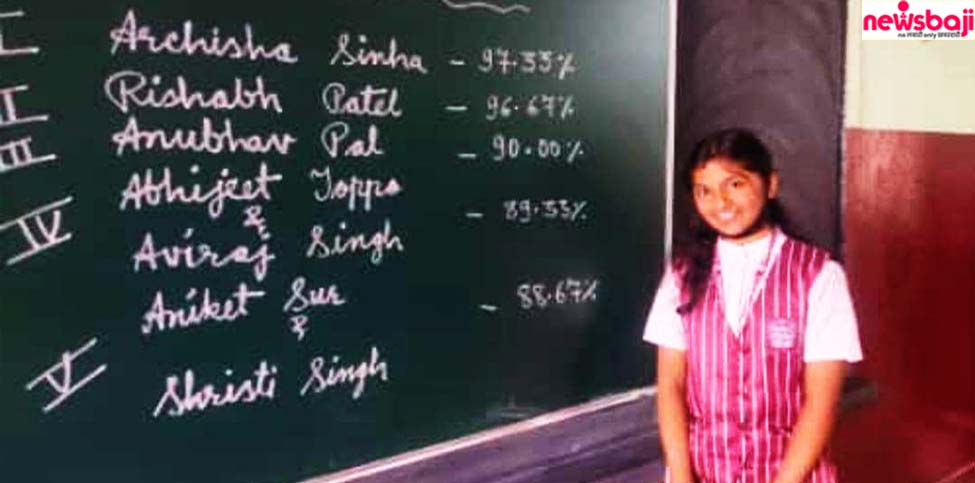 newsbaji
no मस्ती only खबरदारी
I Archisha Sinha - 97.33%
II Rishabh Patel - 96.67%
III Anubhav Pal - 90.00%
IV Abhijeet Toppo
& - 89.33%
Aviraj Singh
Aniket Sur - 88.67%
&
V Shristi Singh